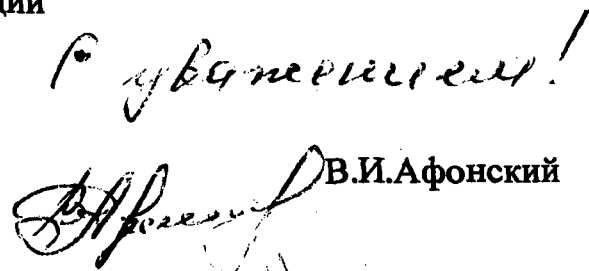 ции
С уважением!
В.И.Афонский